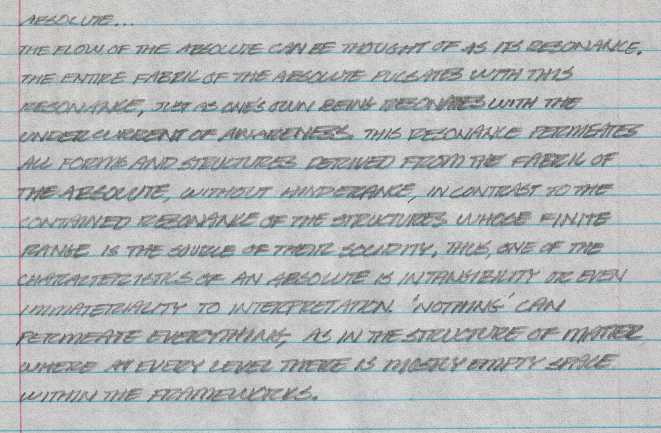 ABSOLUTE...
THE FLOW OF THE ABSOLUTE CAN BE THOUGHT OF AS ITS RESONANCE.
THE ENTIRE FABRIC OF THE ABSOLUTE PULSATES WITH THIS
RESONANCE, JUST AS ONE'S OWN BEING RESONATES WITH THE
UNDERCURRENT OF AWARENESS. THIS RESONANCE PERMEATES
ALL FORMS AND STRUCTURES DERIVED FROM THE FABRIC OF
THE ABSOLUTE, WITHOUT HINDERANCE, IN CONTRAST TO THE
CONTAINED RESONANCE OF THE STRUCTURES WHOSE FINITE
RANGE IS THE SOURCE OF THEIR SOLIDITY. THUS, ONE OF THE
CHARACTERISTICS OF AN ABSOLUTE IS INTANGIBILITY OR EVEN
IMMATERIALITY TO INTERPRETATION. 'NOTHING' CAN
PERMEATE EVERYTHING, AS IN THE STRUCTURE OF MATTER
WHERE AT EVERY LEVEL THERE IS MOSTLY EMPTY SPACE
WITHIN THE FRAMEWORKS.